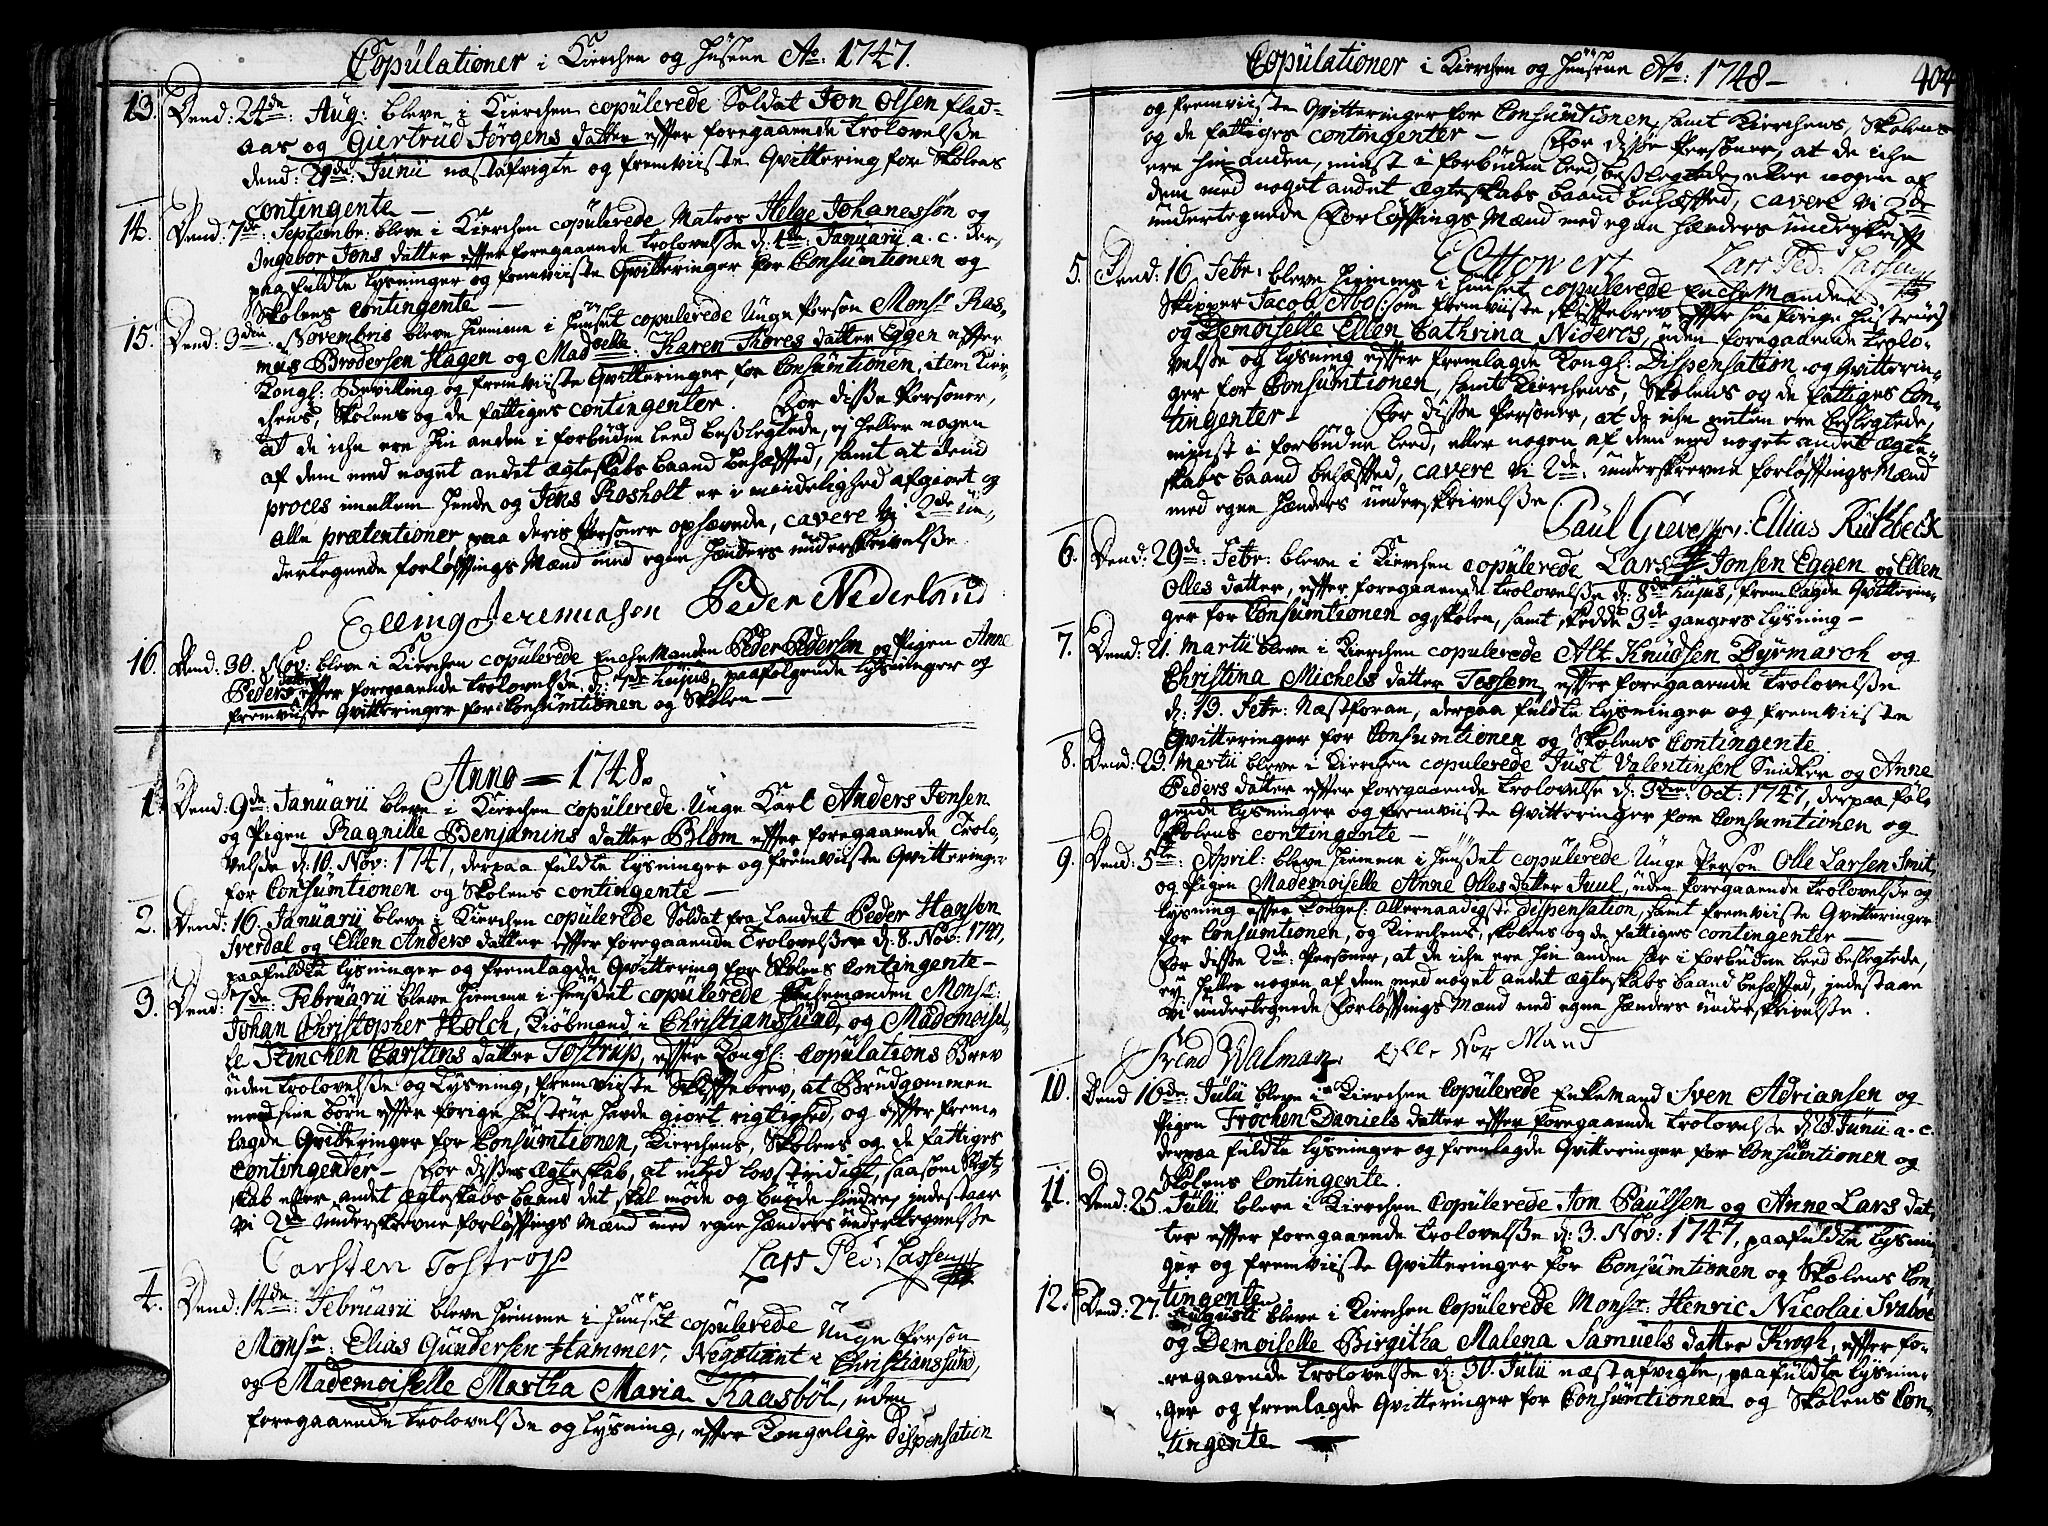 Copulationer i Kierchen og Husene Ao: 1747.
13. Dend: 24de: Aug: bleve i Kierchen copulerede Soldat Jon Olsen Flad-
aas og Giertrud Jørgens datter effter foregaaende Trolovelsse
dend: 29de: Junii næstafvigte og fremviiste Qvittering for Skolens
contingente —
14. Dend: 7de: Septembr: bleve i Kierchen copulerede Matros Helge Johanessøn og
Ingebor Jons datter effter foregaaende Trolovelsse d: 4de: Januarii a. c. der-
paa fuldte Lysninger og fremviiste Qvitteringer for Consumtionen og
Skolens contingente —
15. Dend: 3den. Novembris bleve hiemme i Huuset copulerede Unge Person Monsr Ras-
mus Brodersen Hagen og Madselle: Karen Tores datter Eggen effter
Kongl: Bevilling og fremviiste Qvitteringer for Consumtionen, item Kier-
chens, Skolens og de fattiges contingenter. For disse Personer,
at de iche ere hin anden i forbudne Leed beslegtede, ej heller nogen
af dem med noget andet Ægteskabs baand behæfted, samt at dend
proces imellem hende og Jens Rosholt er i mindelighed afgiort og
alle prætentioner paa deris Personer ophævede, cavere vi 2de un-
dertegnede forløffnings Mænd med egne Hænders underskrivelsse.
Elling Jeremiasøn Peder Nederland
16. Dend: 30. Nov: bleve i Kierchen copulerede Enche Manden Peder Pedersen og Pigen Anne
Peders datter effter foregaaende Trolovelsse d: 7de hujus, paafølgende Lysninger og
fremviiste Qvitteringer for Consumtionen og Skolen —
Anno = 1748.
1. Dend: 9de Januarii bleve i Kierchen copulerede Unge Karl Anders Jonsen
og Pigen Ragnille Benjamins datter Blom effter foregaaende Trolo-
velsse d: 10. Nov: 1747, derpaa fuldte Lysninger og fremviiste Qvitteringer
for Consumtionen og Skolens contingente —
2. Dend: 16. Januarii bleve i Kierchen copulerede Soldat fra Landet Peder Hanson
Sverdal og Ellen Anders datter effter foregaaende Trolovelsser d: 8. Nov: 1747,
paafuldte Lysninger og fremlagde Qvittering for Skolens Contingente —
3. Dend: 7de: Februarii bleve hiemme i Huuset copulerede Enchemanden Monsr:
Johan Christopher Holck, Kiøbmand i Christianssund, og Mademoisel-
le Stinchen Carstens datter Tostrup, effter Kongl: Copulations Brev
uden Trolovelsse og Lysning, fremviiste Skiftebrev, at Brudgommen
med sine børn effter forige Hustrue havde giort rigtighed, og effter frem-
lagde Qvitteringer for Consumtionen, Kierchens, Skolens og de fattiges
Contingenter — For disses Ægteskab, at inted lovstridigt, saasom Slegt-
skab eller andet Ægteskabs baand det skal møde og burde hindre, indestaar
vi 2de underskrevne forløffnings Mænd med egne Hænders undertegnelsse
Carsten Tostrop Lars Ped: Lassen
4. Dend: 14de: Februarii bleve hiemme i Huuset copulerede Unge Person
Monsr: Elias Gundersen Hammer, Negotiant i Christianssund,
og Mademoiselle Martha Maria Raasbøl, uden
foregaaende Trolovelsse og Lysning, effter Kongelige Dispensation
Copulationer i Kierchen og Huusene Ao: 1748 —
404
og fremviiste Qvitteringer for Consumtionen, samt Kierchens, Skolens
og de fattiges contingenter — For disse Personer, at de iche
ere hin anden, minst i forbuden Leed beslegtede, eller nogen af
dem med noget andet Ægteskabs baand behæfted, cavere vi 2de
undertegnede Forløffnings Mænd med egne Hænders underskrifft
Lars Ped: Lassen
5. Dend: 16. Febr: bleve hiemme i Huuset copulerede Enche Manden
Skipper Jacob Abo (: som fremviiste skiftebrev effter sin forige Hustrue)
og Demoiselle Ellen Cathrina Nideros, uden foregaaende Trolo-
velsse og Lysning effter fremlagde Kongl: Dispensation og Qvitterin-
ger for Consumtionen, samt Kierchens, Skolens og de Fattiges Con-
tingenter — For disse Personer, at de iche enten ere beslegtede,
minst i forbudne Leed, eller nogen af dem med noget andet Ægte-
skabs baand behæfted, cavere vi 2de: underskrevne forløffnings Mænd
med egne Hænders underskrivelsse
Ellias Rützbeck
6. Dend: 29de Febr: bleve i Kierchen copulerede Lars Jonsen Eggen og Ellen
Olles datter, effter foregaaende Trolovelsse d: 8de hujus, fremlagde Qvitterin-
ger for Consumtionen og Skolen, samt skedde 3de gangers Lysning —
7. Dend: 21. Martii bleve i Kierchen copulerede Alt Knudsen Dyrmarch og
Christina Michels datter Tossem effter foregaaende Trolovelsse
d: 19. Febr: Næstforan, derpaa fuldte Lysninger og fremviiste
Qvitteringer for Consumtionen og Skolens Contingente.
8. Dend: 29. Martii bleve i Kierchen copulerede Just Valentinsen Snidker og Anne
Peders datter effter foregaaende Trolovelse d: 3die: Oct: 1747, derpaa føl-
gende Lysninger og fremviiste Qvitteringer for Consumtionen og
Skolens contingente —
9. Dend: 5te: April: bleve hiemme i Huuset copulerede Unge Person Olle Larsen Smit,
og Pigen Mademoiselle Anne Olles datter Juul, uden foregaaende Trolovelsse og
Lysning effter Kongel: allernaadigste dispensation, samt fremviiste Qvitteringer
for Consumtionen, og Kierchens, Skolens og de fattiges contingenter —
For disse 2de: Personer, at de iche ere hin anden saa i forbudne Leed beslegtede,
ey heller nogen af dem med noget andet Ægteskabs baand behæfted, indestaar
vi undertegnede Forløffnings Mænd med egne Hænders underskrivelsse.
Svend Walman,
10. Dend 16de: Julii bleve i Kierchen Copulerede Enkemand Sven Adriansen og
Pigen Trochen Daniels datter effter foregaaende Trolovelsse d: 25 Junii a. c.
derpaa fuldte Lysninger og fremlagde Qvitteringer for Consumtionen og
Skolens Contingente.
11. Dend: 25. Julii bleve i Kierchen Copulerede Jon Paulsen og Anne Lars dat-
ter effter foregaaende Trolovelsse d: 3. Nov: 1747, paafuldte Lysnin-
ger og fremviiste Qvitteringer for Consumtionen og Skolens Con-
tingente.
12. Dend: 27. Augusti bleve i Kierchen Copulerede Monsr: Henric Nicolai Svaboe
og Demoiselle Birgitha Malena Samuels datter Krogh, effter fo-
regaaende Trolovelsse d: 30. Julii næst afvigte, paafuldte Lysnin-
ger og fremlagde Qvitteringer for Consumtionen og Skolens Con-
tingente —